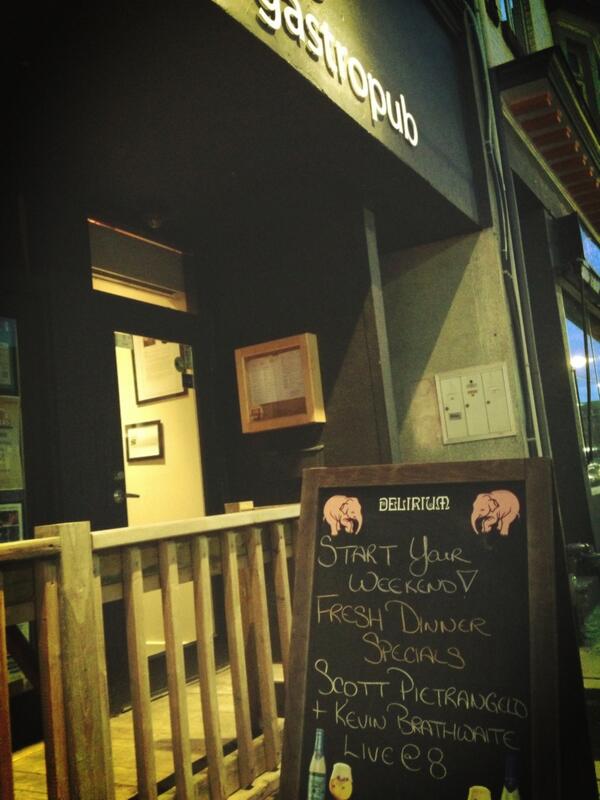 gastropub
DELIRIUM
START YOUR
WEEKEND
FRESH DINNER
SPECIALS
SCOTT PIETRANGELO
+ KEVIN BRATHWAITE
LIVE @ 8